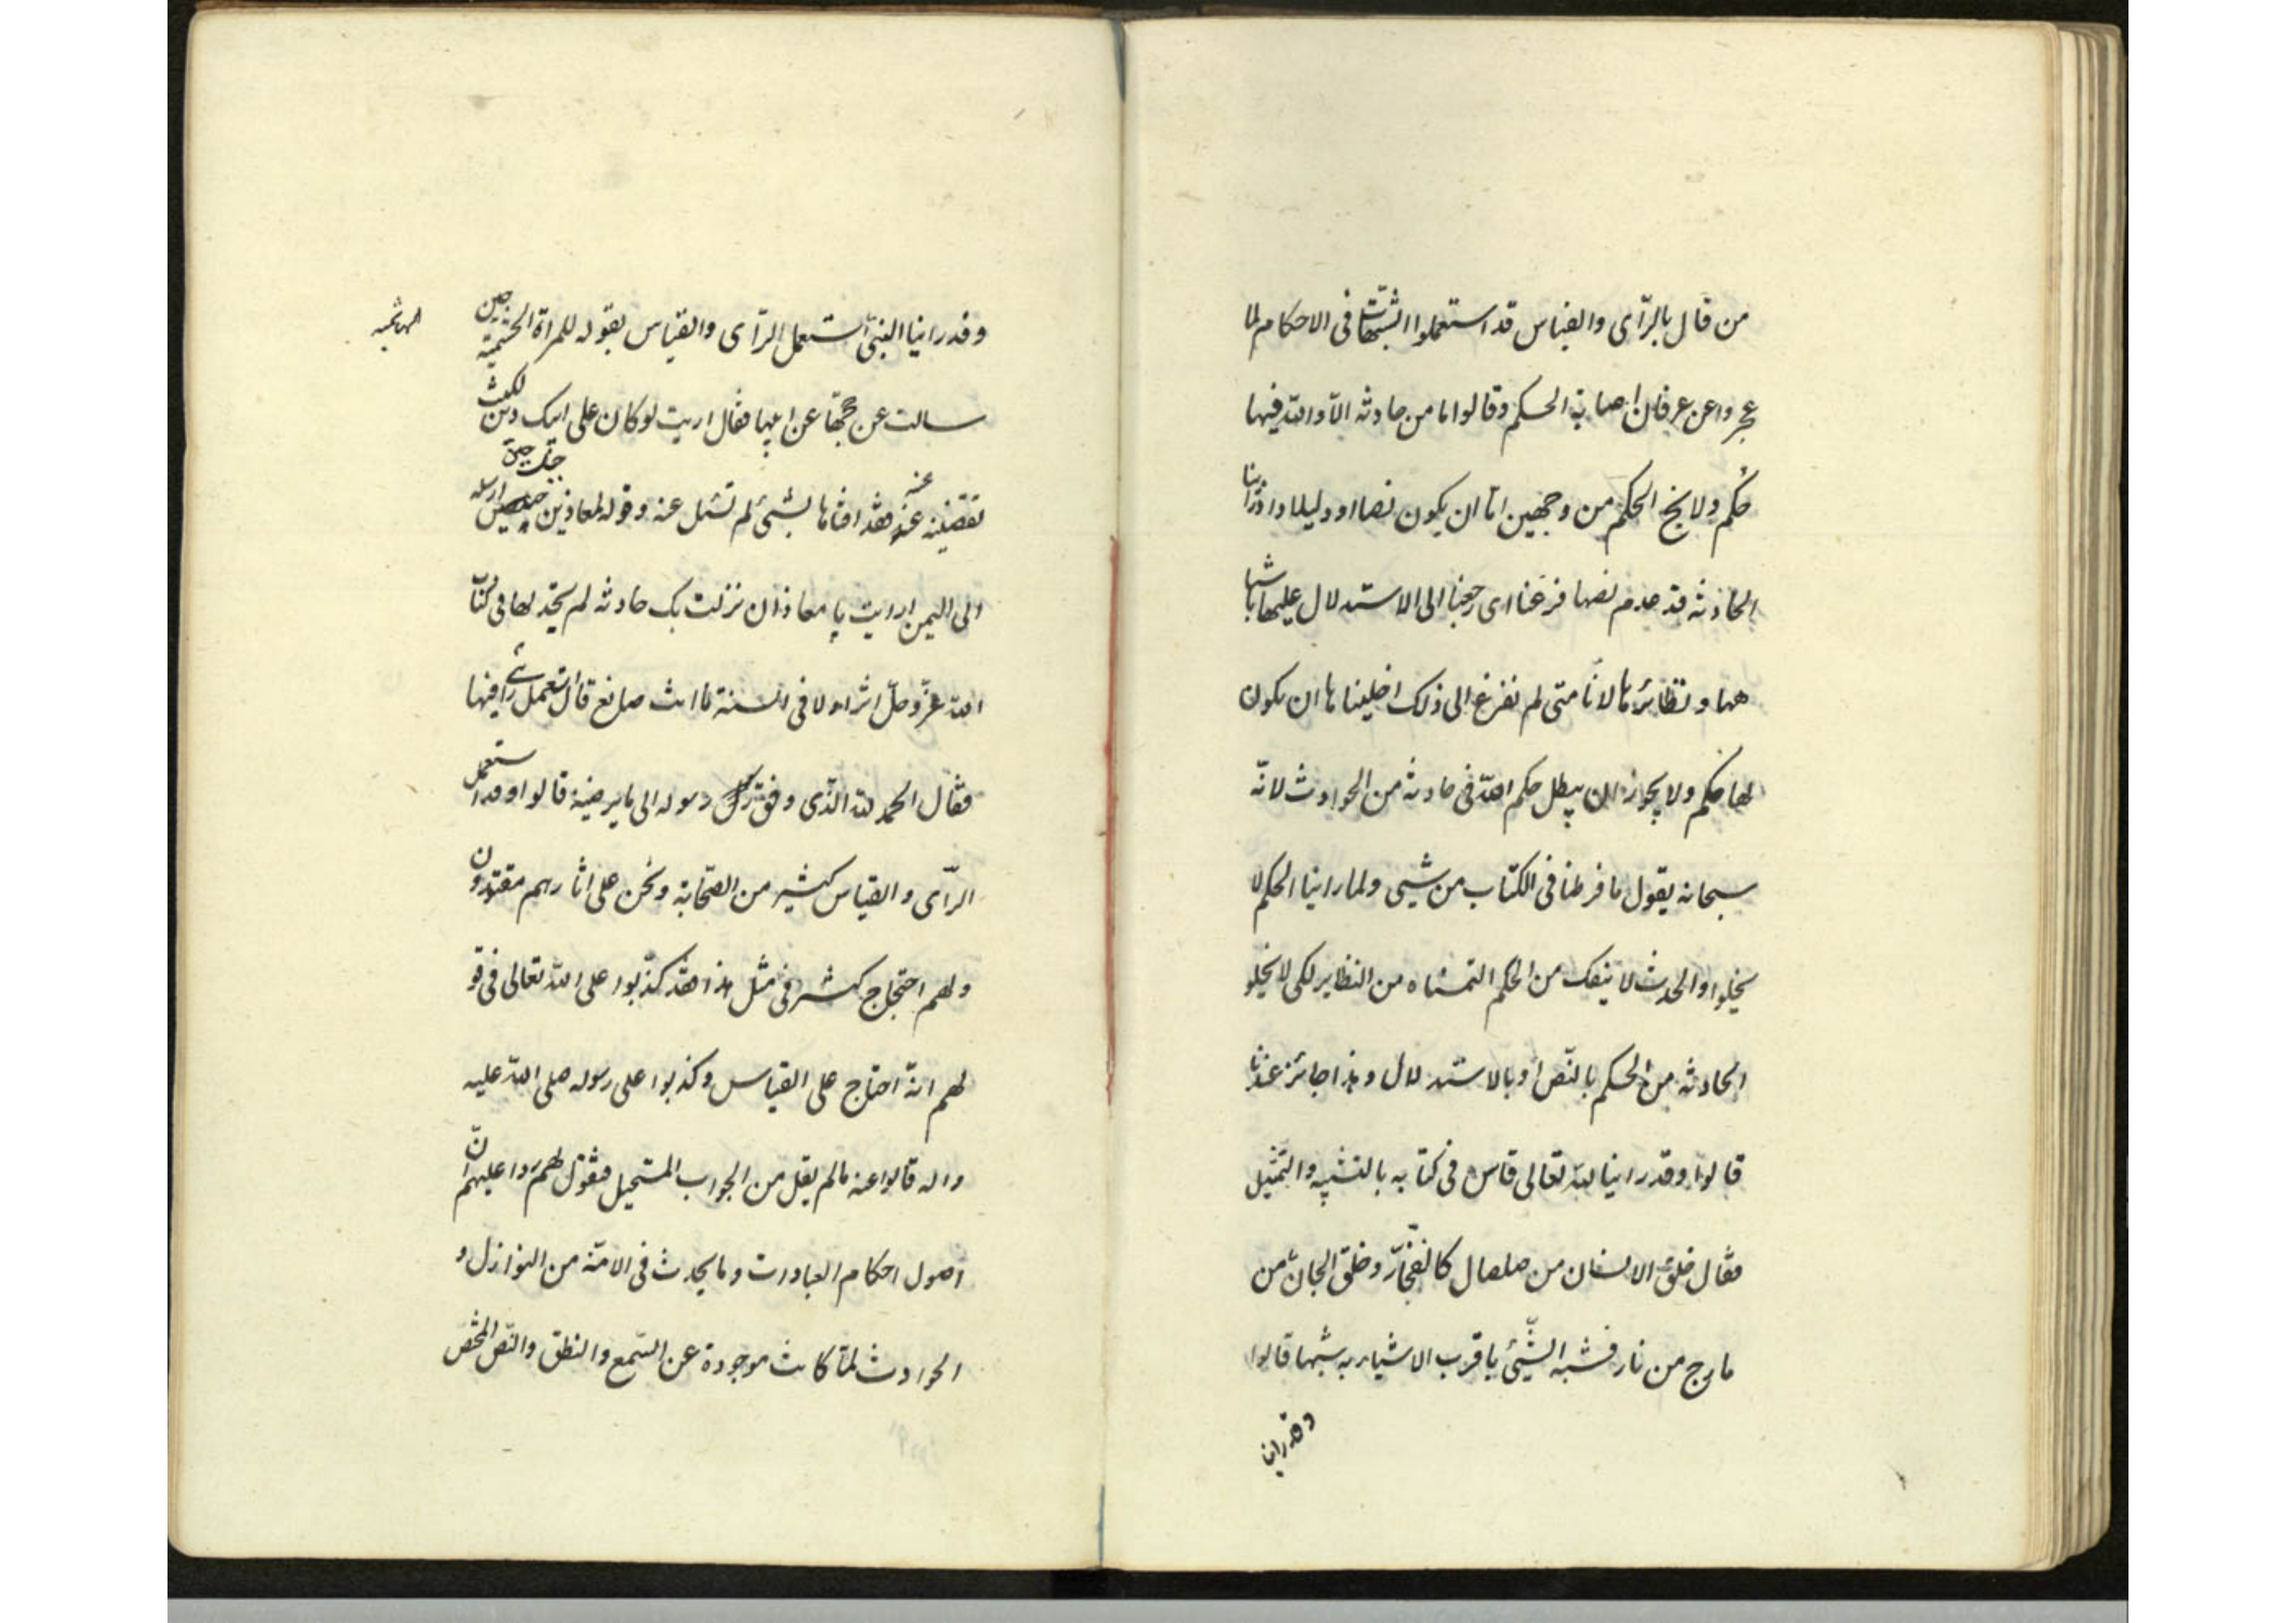 من قال بالرّأى والقياس قد استعملوا الشبهات فى الاحكام لما
عجزوا عن عرفان اصابة الحكم وقالوا ما من حادثه الّا ولله فيها
حُكم ولا يخ الحكم من وجهين امّا ان يكون نصا او دليلا واذا راينا
الحادثه قد عدم نصها فزعنا اى رجعنا الى الاستدلال عليها باشبا
هها ونظائرها لانّا متى لم نفزع الى ذلك اخليناها ان يكون
لها حكم ولا يجوز ان يبطل حكم الله فى حادثه من الحوادث لانّه
سبحانه يقول ما فرطنا فى الكتاب من شيىء ولما راينا الحكم لا
يخلوا والحدث لا ينفك من الحكم التمسناه من النظاير لكى لا يخلو
الحادثه من الحكم بالنّص او بالاستدلال وهذا جائز عندنا
قالوا وقد راينا الله تعالى قاس فى كتابه بالتشبيه والتمثيل
فقال خلق الانسان من صلصال كالفخّار وخلق الجانّ من
مارج من نار فشبه الشّيىء باقرب الاشياء به شبها قالوا
وقد راينا
وقد راينا النبىّ استعمل الرّأى والقياس بقوله للمراة الخثعميّة حين
سالت عن حجّها عن ابيها فقال اريت لو كان على ابيك دين لكنت
تقضينه عنه فقد افتاها بشيىء لم تسئل عنه وقوله لمعاذ بن جبل حين ارسله
الى اليمن ارايت يا معاذ ان نزلت بك حادثه لم تجد لها فى كتاب
الله عزّ وجلّ اثرا ولا فى السنة ما انت صانع قال استعمل رأيى فيها
فقال الحمد لله الذّى وفق رسول رسوله الى ما يرضيه قالوا وقد استعمل
الرّأى والقياس كثير من الصّحابة ونحن على اثارهم مقتدون
ولهم احتجاج كثير فى مثل هذا فقد كذّبوا على الله تعالى فى قو
لهم انّه احتاج على القياس وكذبوا على رسوله صلى الله عليه
واله قالوا عنه ما لم يقل من الجواب المستحيل فنقول لهم ردا عليهم انّ
اصول احكام العبادات وما يحدث فى الامّة من النوازل و
الحوادث لمّا كانت موجودة عن السّمع والنطق والنّص المختص